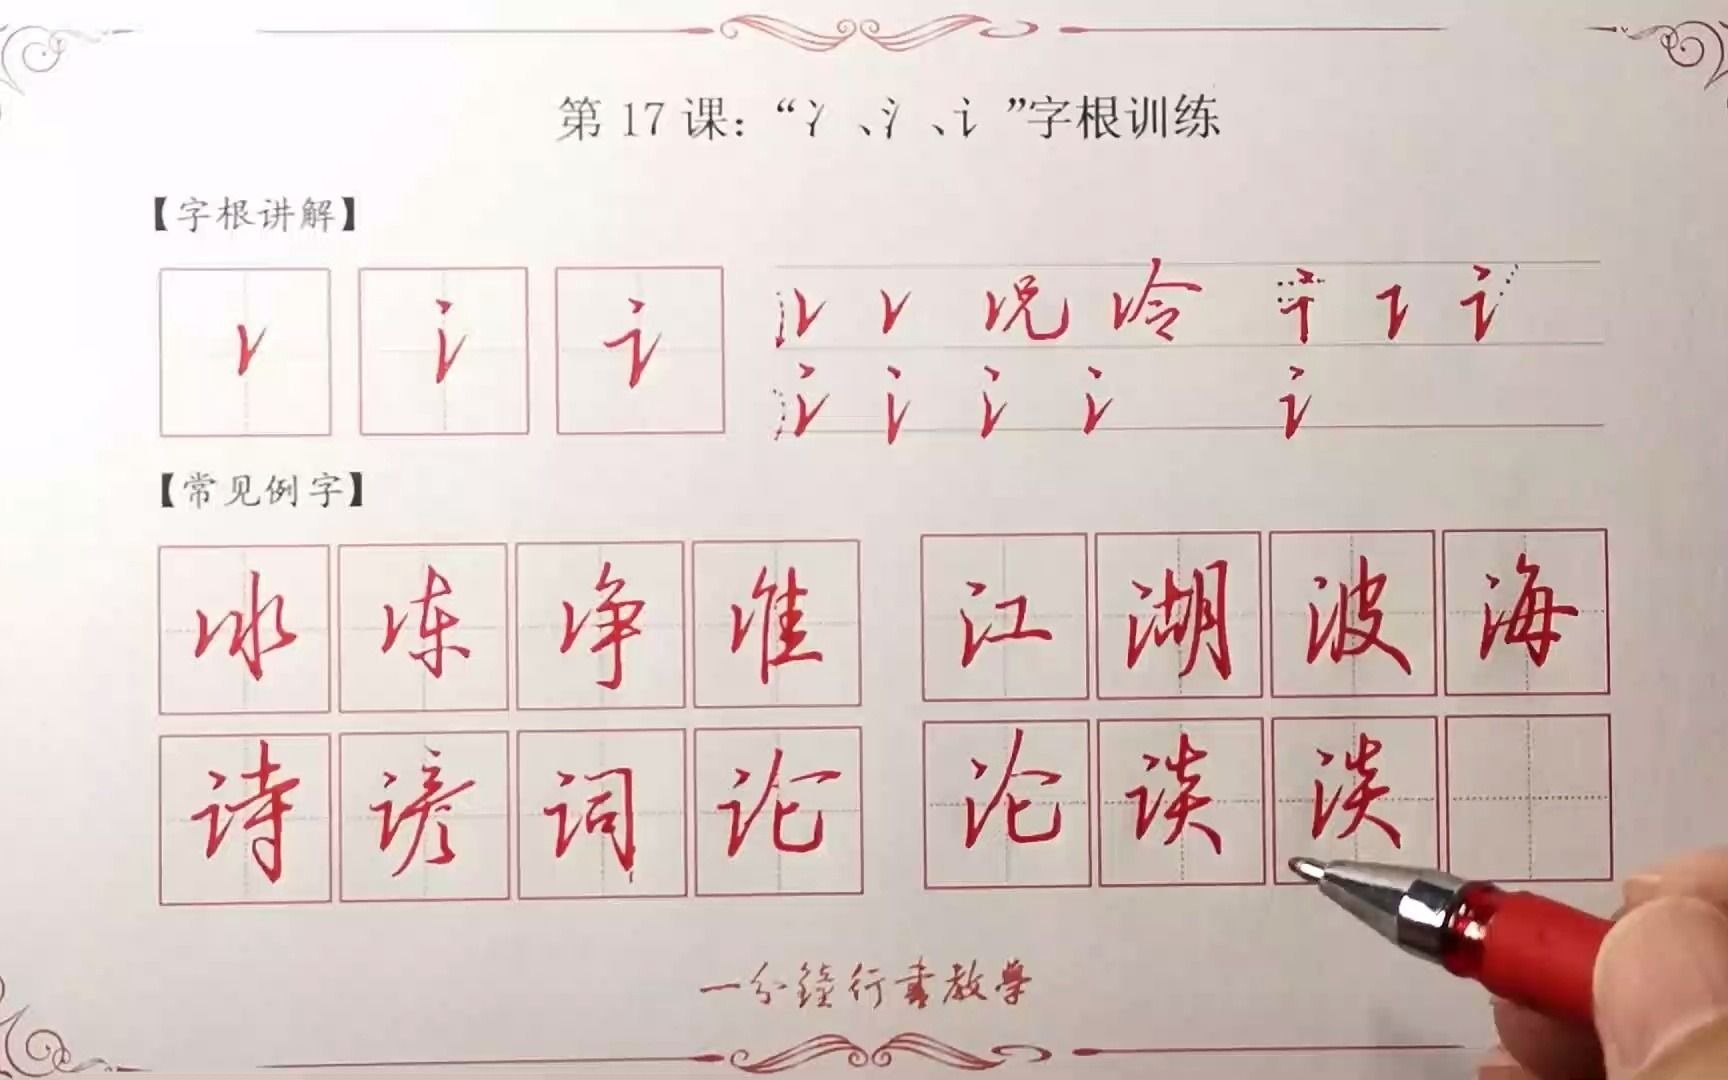 第17课：“冫、氵、讠”字根训练
【字根讲解】
冫 氵 讠
冫 冫 况 冷
氵 氵 氵 氵
【常见例字】
冰 冻 净 准 江 湖 波 海
诗 谚 词 论 沦 谈 淡
一分鐘行書教學